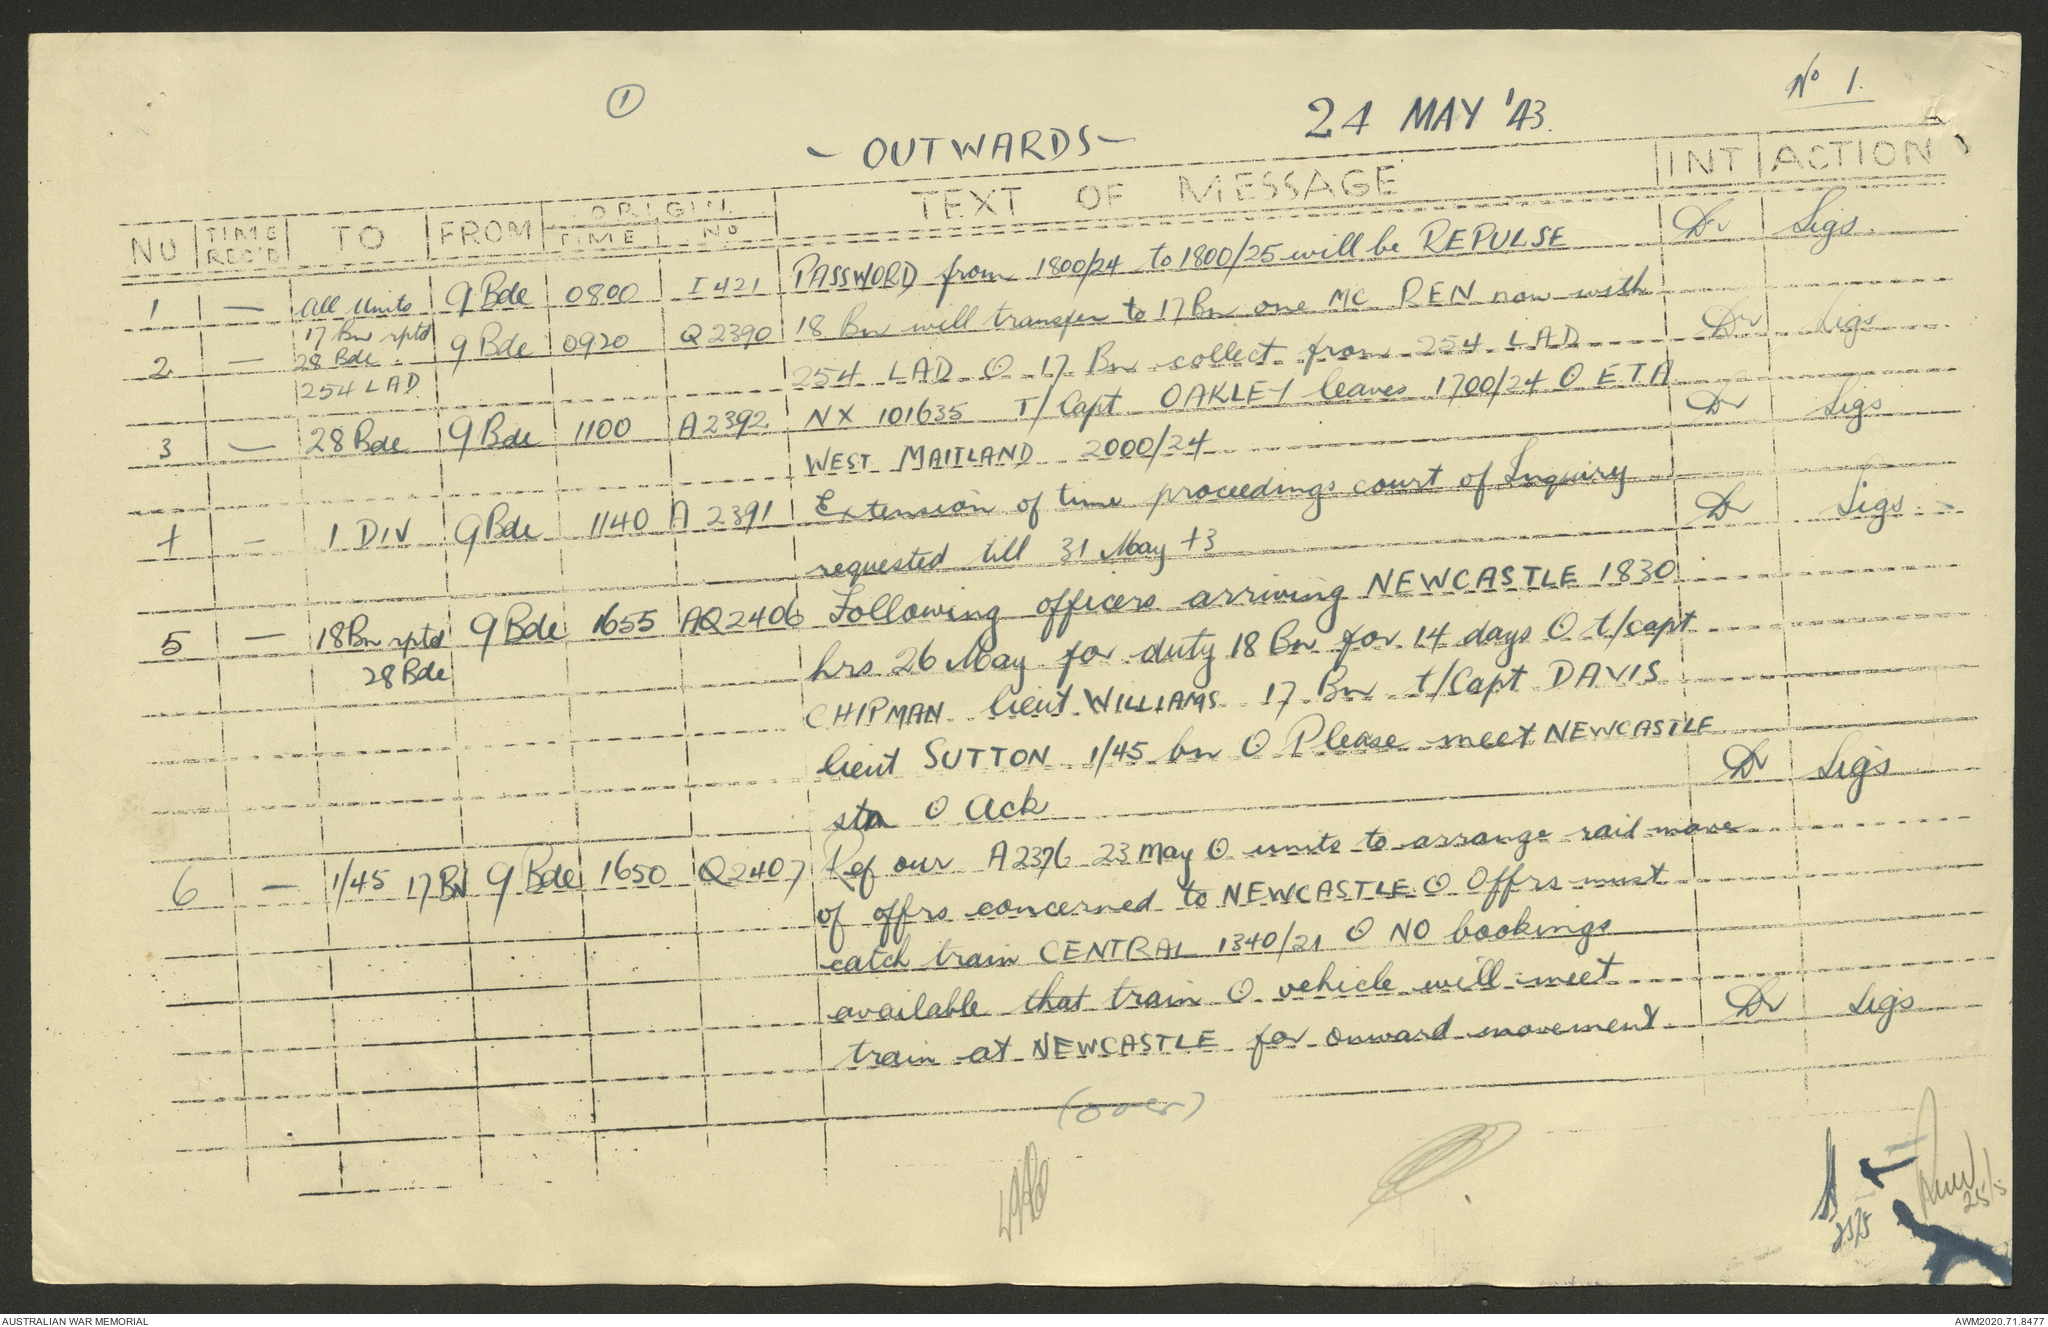 No 1.
①
24 MAY '43.
- OUTWARDS -
NO | TIME REC'D | TO | FROM | ORIGIN TIME | No | TEXT OF MESSAGE | INT | ACTION
1 — All Units 9 Bde 0800 I 421 PASSWORD from 1800/24 to 1800/25 will be REPULSE Dr Sigs.
2 — 17 Bn rptd 9 Bde 0920 Q 2390 18 Bn will transfer to 17 Bn one MC BEN now with
28 Bde. 254 LAD O 17 Bn collect from 254 LAD Dr Sigs
254 LAD
3 — 28 Bde 9 Bde 1100 A 2392 NX 101635 T/Capt OAKLEY leaves 1700/24 O ETA
WEST MAITLAND 2000/24 Dr Sigs
4 — 1 DIV 9 Bde 1140 A 2391 Extension of time proceedings court of Inquiry
requested till 31 May 43 Dr Sigs
5 — 18 Bn rptd 9 Bde 1655 AQ 2406 Following officers arriving NEWCASTLE 1830
28 Bde hrs 26 May for duty 18 Bn for 14 days O t/capt
CHIPMAN lieut WILLIAMS 17 Bn t/Capt DAVIS
lieut SUTTON 1/45 bn O Please meet NEWCASTLE
sta O Ack Dr Sigs
6 — 1/45 17 BN 9 Bde 1650 Q 2407 Ref our A 2376 23 May O units to arrange rail move
of offrs concerned to NEWCASTLE O Offrs must
catch train CENTRAL 1340/21 O NO bookings
available that train O vehicle will meet
train at NEWCASTLE for onward movement Dr Sigs
(over)
25/5
25/5
AUSTRALIAN WAR MEMORIAL
AWM2020.71.8477